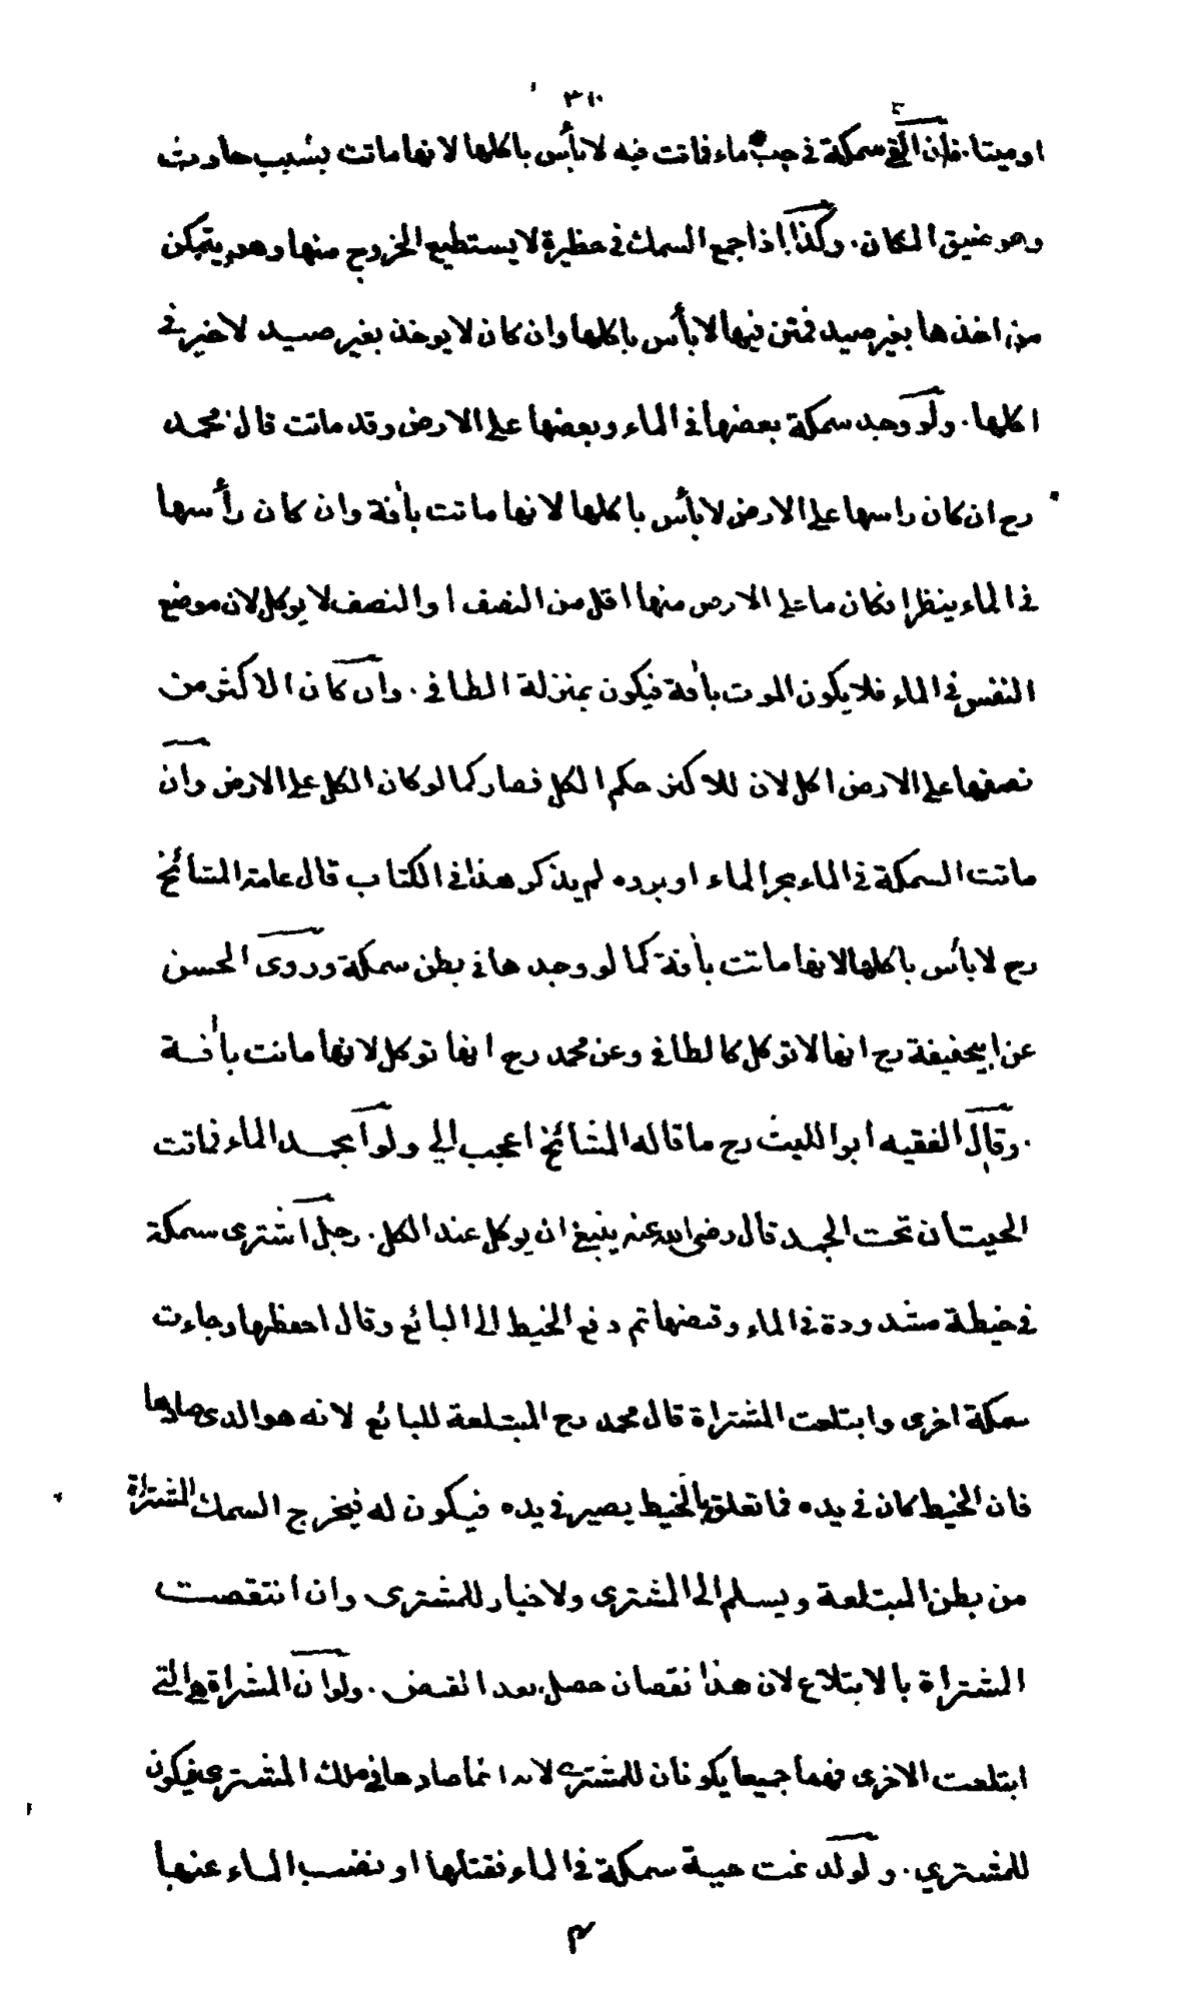 ٣١٠
او ميتا. فان القى سمكة في جب ماء فماتت فيه لا بأس باكلها لانها ماتت بسبب حادث
وهو ضيق المكان. وكذا اذا جمع السمك في حظيرة لا يستطيع الخروج منها وهو يتمكن
من اخذها بغير صيد فمتن فيها لا بأس باكلها وان كان لا يوخذ بغير صيد لا خير في
اكلها. ولو وجد سمكة بعضها في الماء وبعضها على الارض وقد ماتت قال محمد
رح ان كان راسها على الارض لا بأس باكلها لانها ماتت بافة وان كان رأسها
في الماء ينظر انكان ما على الارض منها اقل من النصف او النصف لا يوكل لان موضع
النفس في الماء فلا يكون الموت بافة فيكون بمنزلة الطافي. وان كان الاكثر من
نصفها على الارض اكل لان للاكثر حكم الكل فصار كما لو كان الكل على الارض وان
ماتت السمكة في الماء بحر الماء او برده لم يذكر هذا في الكتاب قال عامة المشائخ
رح لا بأس باكلها لانها ماتت بأفة كما لو وجدها في بطن سمكة وروى الحسن
عن ابيحنيفة رح انها لا توكل كالطافي وعن محمد رح انها توكل لانها ماتت بافة
. وقال الفقيه ابو الليث رح ما قاله المشائخ اعجب الي ولو انجمد الماء فماتت
الحيتان تحت الجمد قال رضي الله عنه ينبغي ان يوكل عند الكل. رجل اشترى سمكة
في خيطة مشدودة في الماء وقبضها ثم دفع الخيط الى البائع وقال احفظها وجاءت
سمكة اخرى وابتلعت المشتراة قال محمد رح المبتلعة للبائع لانه هو الذى صادها
فان الخيط كان في يده فما تعلق بالخيط يصير في يده فيكون له فيخرج السمك المشتراة
من بطن المبتلعة ويسلم الى المشترى ولا خيار للمشترى وان انتقصت
المشتراة بالابتلاع لان هذا نقصان حصل بعد القبض. ولو ان المشتراة هي التي
ابتلعت الاخرى فهما جميعا يكونان للمشترى لانه انما صادها في ملك المشترى فيكون
للمشتري. ولو لدغت حية سمكة في الماء فقتلها او نضب الماء عنها